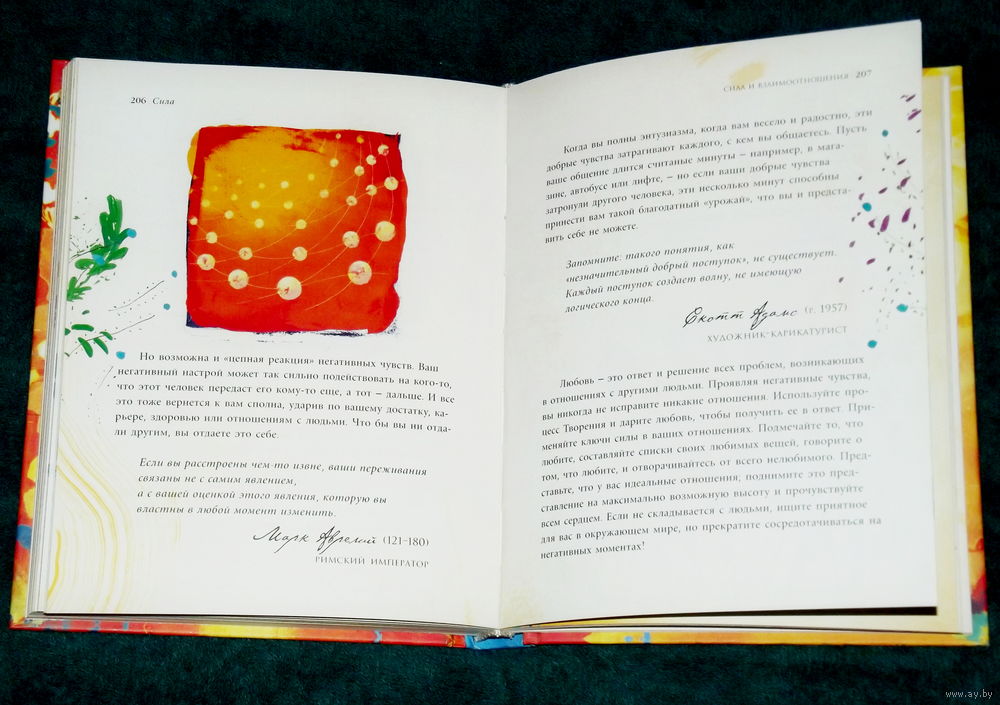 206 Сила
Но возможна и «цепная реакция» негативных чувств. Ваш
негативный настрой может так сильно подействовать на кого-то,
что этот человек передаст его кому-то еще, а тот – дальше. И все
это тоже вернется к вам сполна, ударив по вашему достатку, ка-
рьере, здоровью или отношениям с людьми. Что бы вы ни отда-
ли другим, вы отдаете это себе.
Если вы расстроены чем-то извне, ваши переживания
связаны не с самим явлением,
а с вашей оценкой этого явления, которую вы
властны в любой момент изменить.
Марк Аврелий (121–180)
РИМСКИЙ ИМПЕРАТОР
СИЛА И ВЗАИМООТНОШЕНИЯ 207
Когда вы полны энтузиазма, когда вам весело и радостно, эти
добрые чувства затрагивают каждого, с кем вы общаетесь. Пусть
ваше общение длится считаные минуты – например, в мага-
зине, автобусе или лифте, – но если ваши добрые чувства
затронули другого человека, эти несколько минут способны
принести вам такой благодатный «урожай», что вы и предста-
вить себе не можете.
Запомните: такого понятия, как
«незначительный добрый поступок», не существует.
Каждый поступок создает волну, не имеющую
логического конца.
Скотт Адамс (г. 1957)
ХУДОЖНИК-КАРИКАТУРИСТ
Любовь – это ответ и решение всех проблем, возникающих
в отношениях с другими людьми. Проявляя негативные чувства,
вы никогда не исправите никакие отношения. Используйте про-
цесс Творения и дарите любовь, чтобы получить ее в ответ. При-
меняйте ключи силы в ваших отношениях. Подмечайте то, что
любите, составляйте списки своих любимых вещей, говорите о
том, что любите, и отворачивайтесь от всего нелюбимого. Пред-
ставьте, что у вас идеальные отношения; поднимите это пред-
ставление на максимально возможную высоту и прочувствуйте
всем сердцем. Если не складывается с людьми, ищите приятное
для вас в окружающем мире, но прекратите сосредотачиваться на
негативных моментах!
www.ay.by